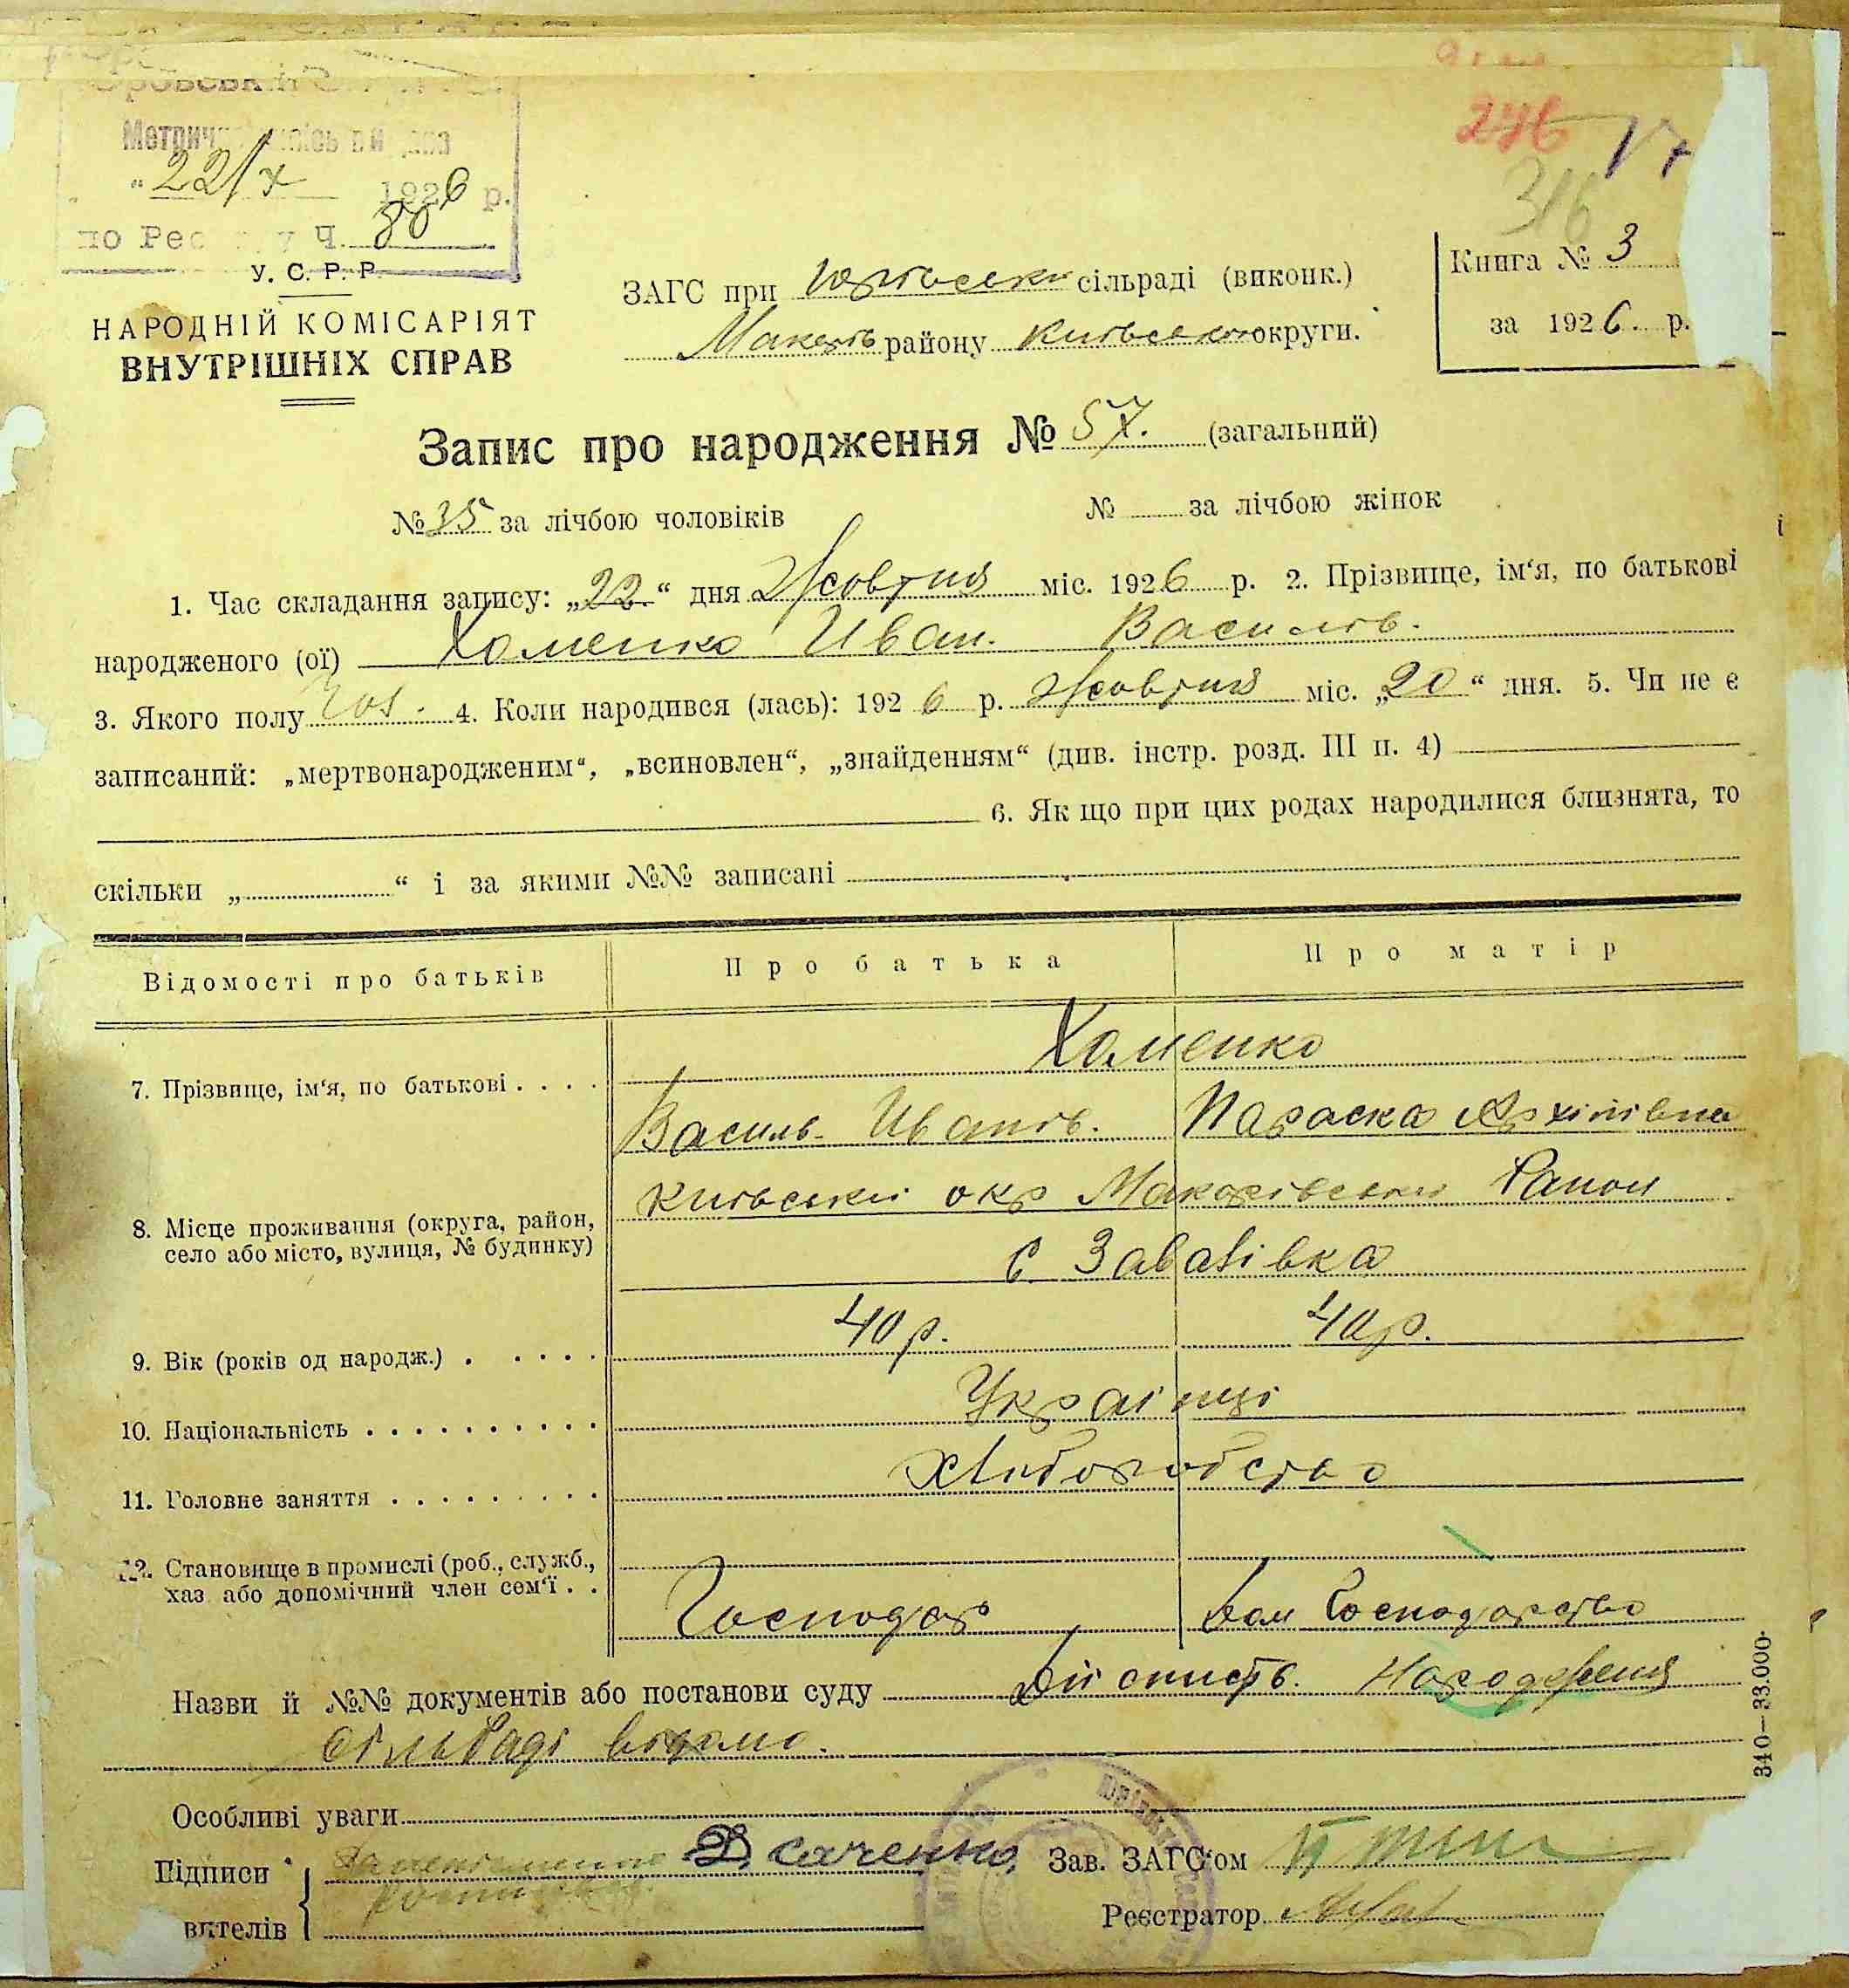 246 17
316
"22/X 1926 р.
по Ч. 80
У. С. Р. Р.
НАРОДНІЙ КОМІСАРІЯТ
ВНУТРІШНІХ СПРАВ
ЗАГС при сільраді (виконк.)
Макарів району Київської округи.
Книга № 3
за 1926. р.
Запис про народження № 57. (загальний)
№ 35 за лічбою чоловіків
№ за лічбою жінок
1. Час складання запису: „22" дня Жовтня міс. 1926 р. 2. Прізвище, ім'я, по батькові
народженого (ої) Хоменко Иван. Василів.
3. Якого полу Чол. 4. Коли народився (лась): 1926 р. Жовтня міс. „20" дня. 5. Чи не є
записаний: „мертвонародженим", „всиновлен", „знайденням" (див. інстр. розд. III п. 4)
6. Як що при цих родах народилися близнята, то
скільки „ " і за якими №№ записані
Відомості про батьків Про батька Про матір
Хоменко
7. Прізвище, ім'я, по батькові . . . .
Василь Иванів. Параска Архипівна
Київській окр Макарівський Район
8. Місце проживання (округа, район,
село або місто, вулиця, № будинку)
с. Завалівка
40 р. 40 р.
9. Вік (років од народж.) . . . . .
Українці
10. Національність . . . . . . . . . .
Хліборобство
11. Головне заняття . . . . . . . . .
12. Становище в промислі (роб., служб.,
хаз. або допомічний член сем'ї . .
Господар Дом Господарство
Назви й №№ документів або постанови суду Дійсність. Народження
Сільраді відомо.
340—33.000.
Особливі уваги
Підписи Д Саченко, Зав. ЗАГС'ом
Реєстратор
вителів